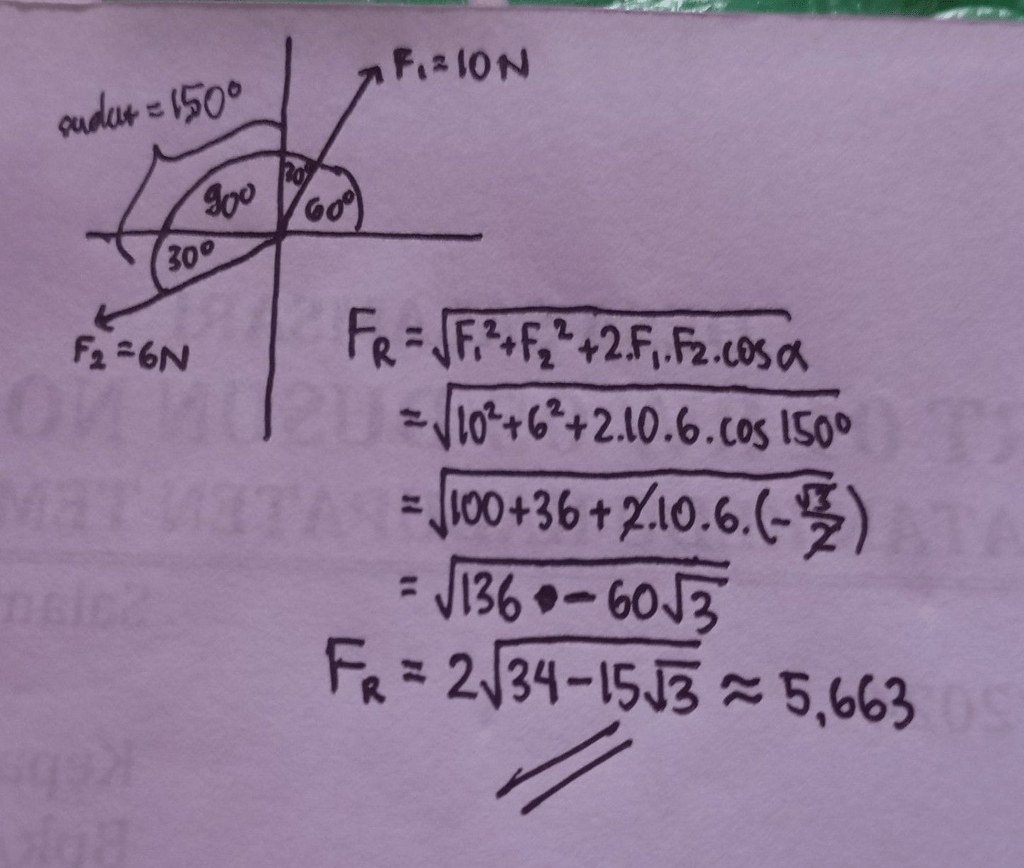 F₁=10N
sudut = 150°
90° 30° 60°
30°
F₂=6N
F_R = √F₁²+F₂²+2.F₁.F₂.cos α
= √10²+6²+2.10.6.cos 150°
= √100+36+2.10.6.(-√3/2)
= √136 - 60√3
F_R = 2√34-15√3 ≈ 5,663